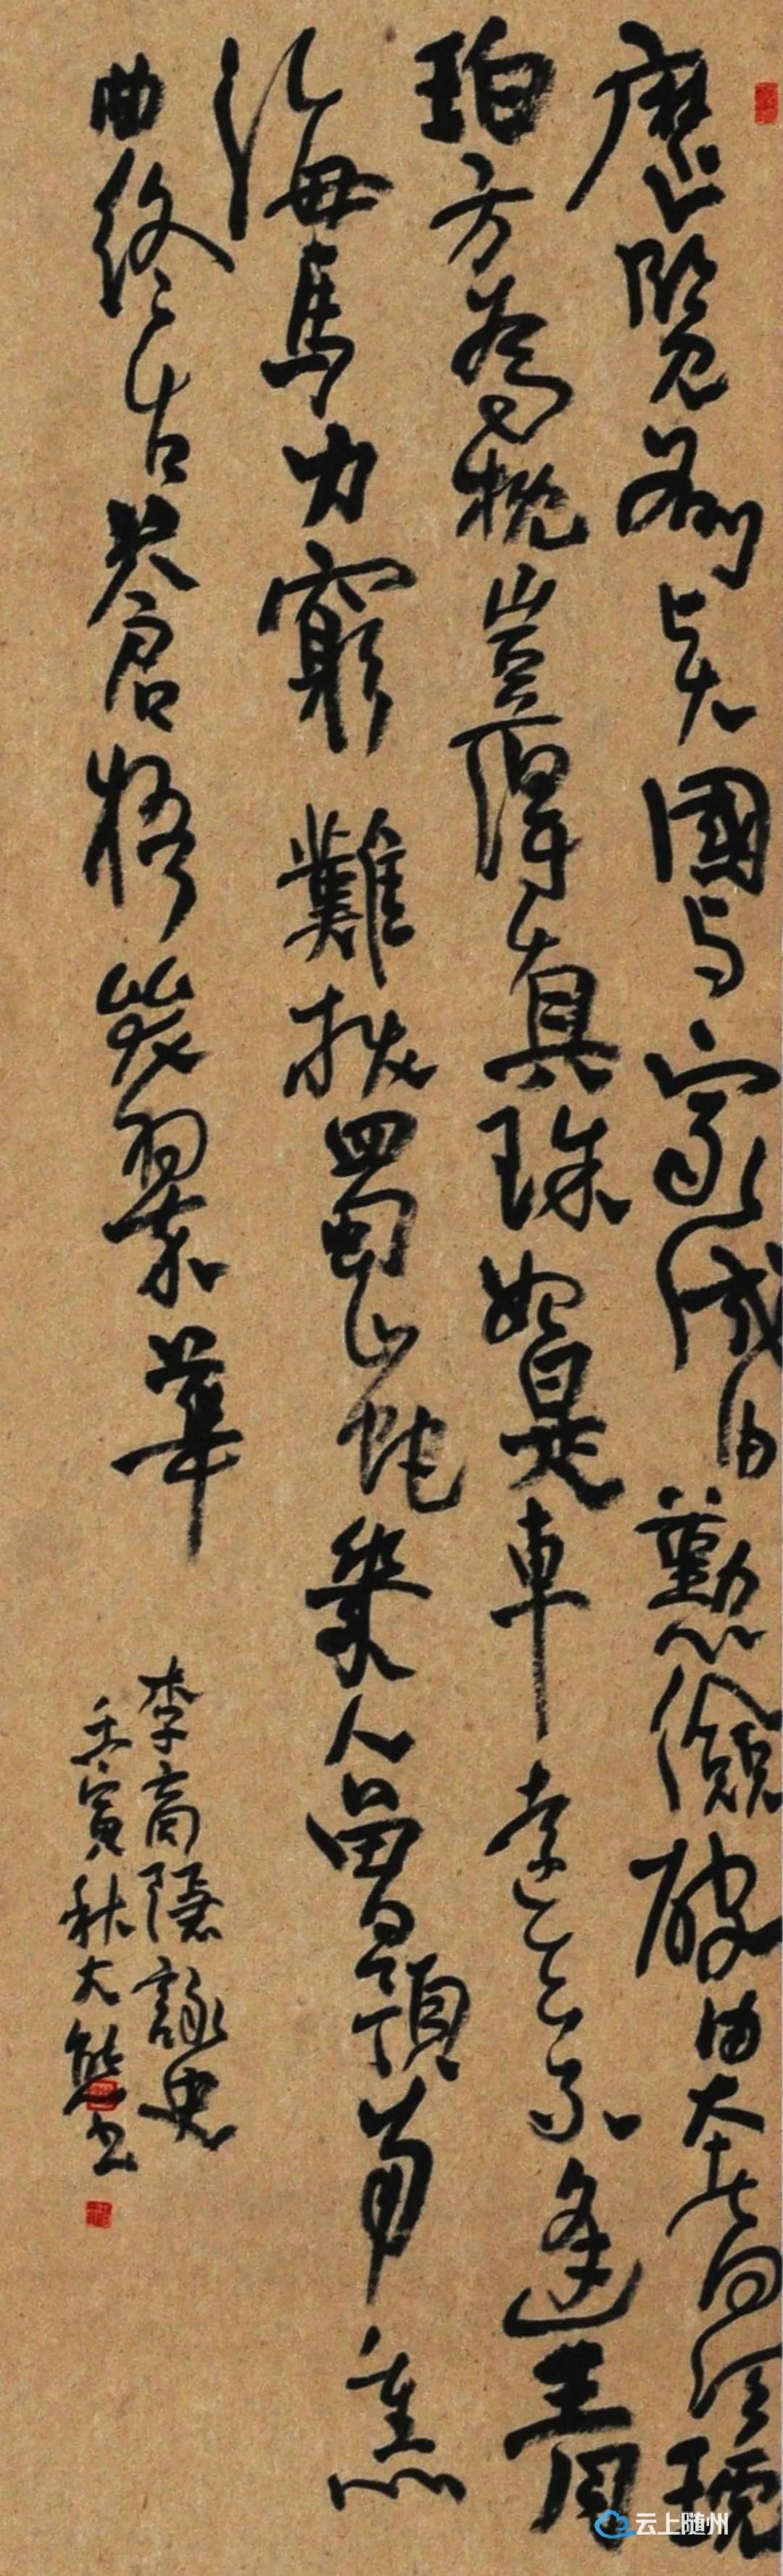 歷覽前贤國与家成由勤儉破由奢何须琥
珀方為枕豈得真珠始是車遠去不逢青
海馬力窮難拔蜀山蛇幾人曾預南熏
曲終古蒼梧哭翠華
李商隱詠史
壬寅秋大熊书
云上随州